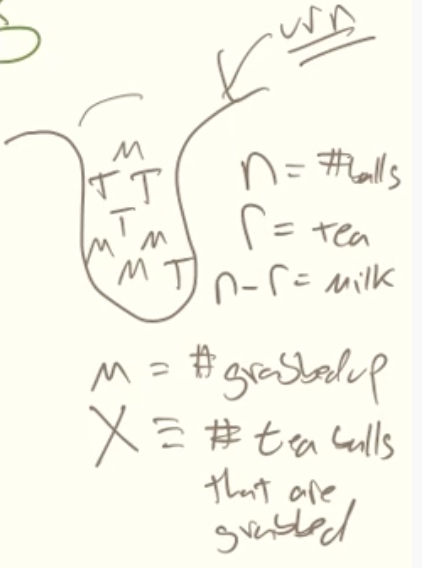 urn
M
T T
T
M M
M T
n = #balls
r = tea
n-r = milk
m = # grabbed up
X ≡ # tea balls
that are
grabbed